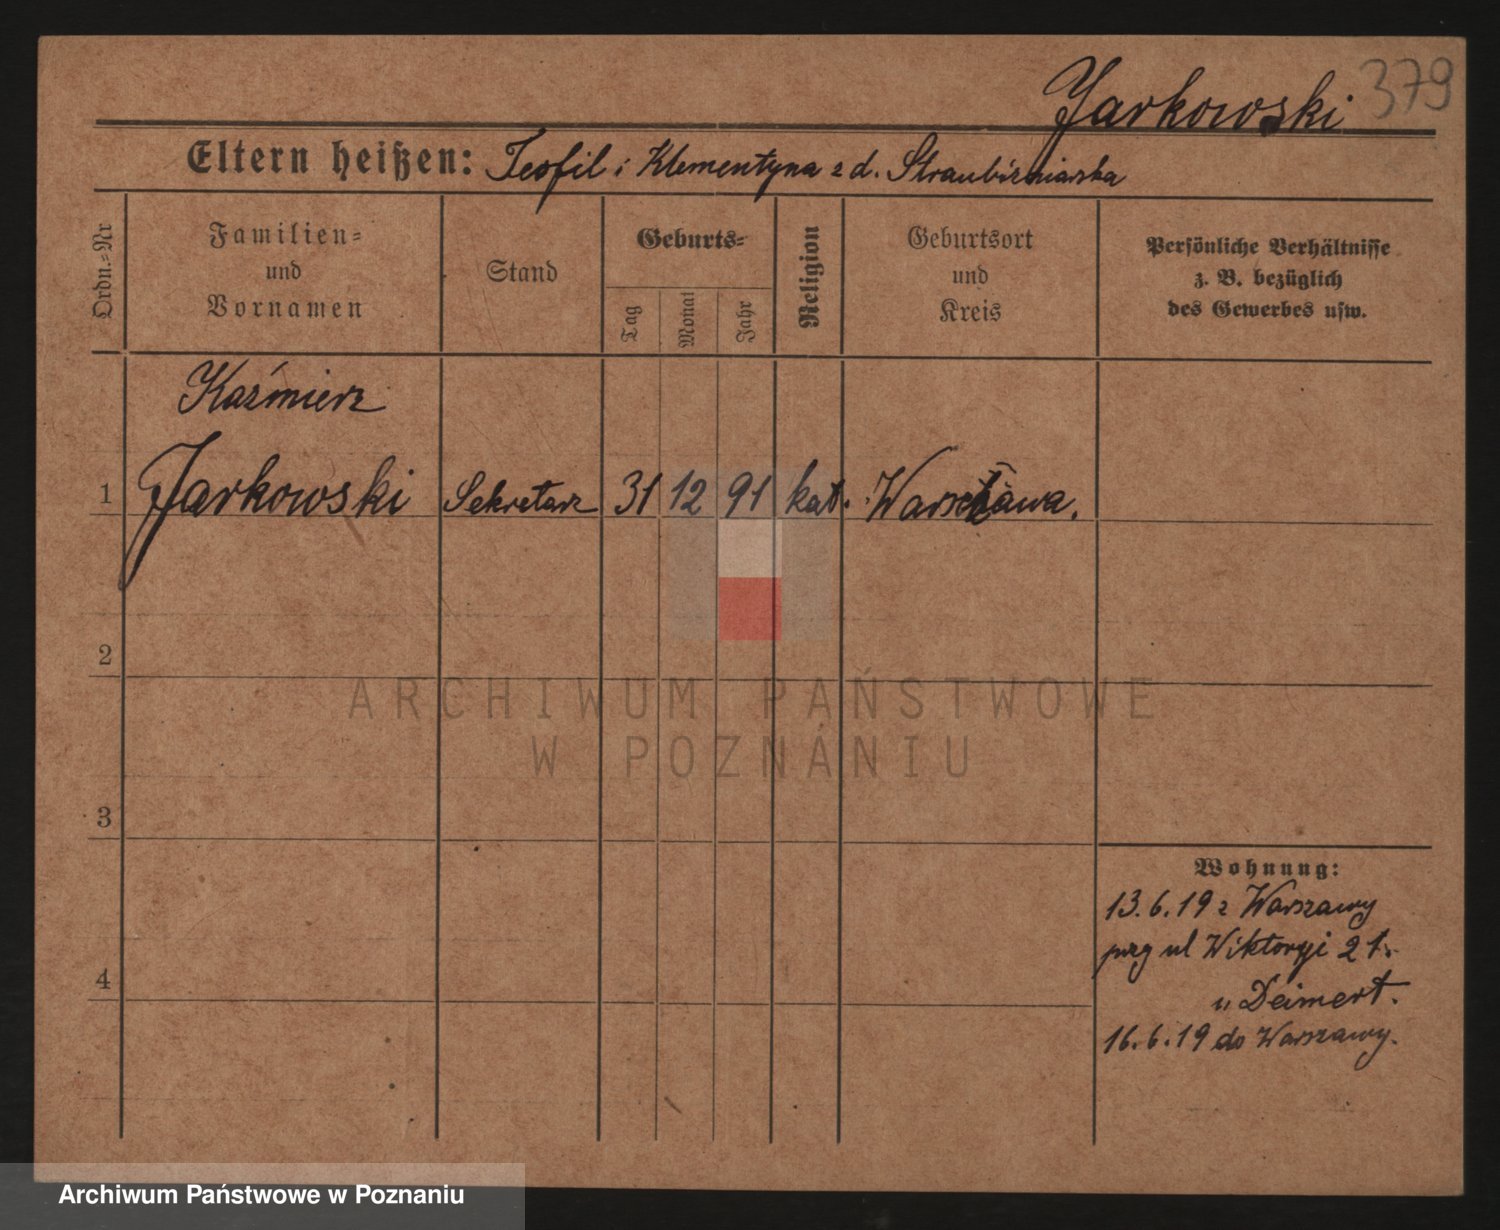 Jarkowski 379
Eltern heißen: Teofil i Klementyna z d.
Ordn.-Nr
Familien-
und
Vornamen
Stand
Geburts-
Tag
Monat
Jahr
Religion
Geburtsort
und
Kreis
Persönliche Verhältnisse
z. B. bezüglich
des Gewerbes usw.
Kaźmierz
1 Jarkowski Sekretarz 31 12 91 kat. Warszawa.
2
ARCHIWUM PAŃSTWOWE
W POZNANIU
3
Wohnung:
13.6.19 z Warszawy
przy ul Wiktoryi 21.
4
u Deimert.
16.6.19 do Warszawy.
Archiwum Państwowe w Poznaniu